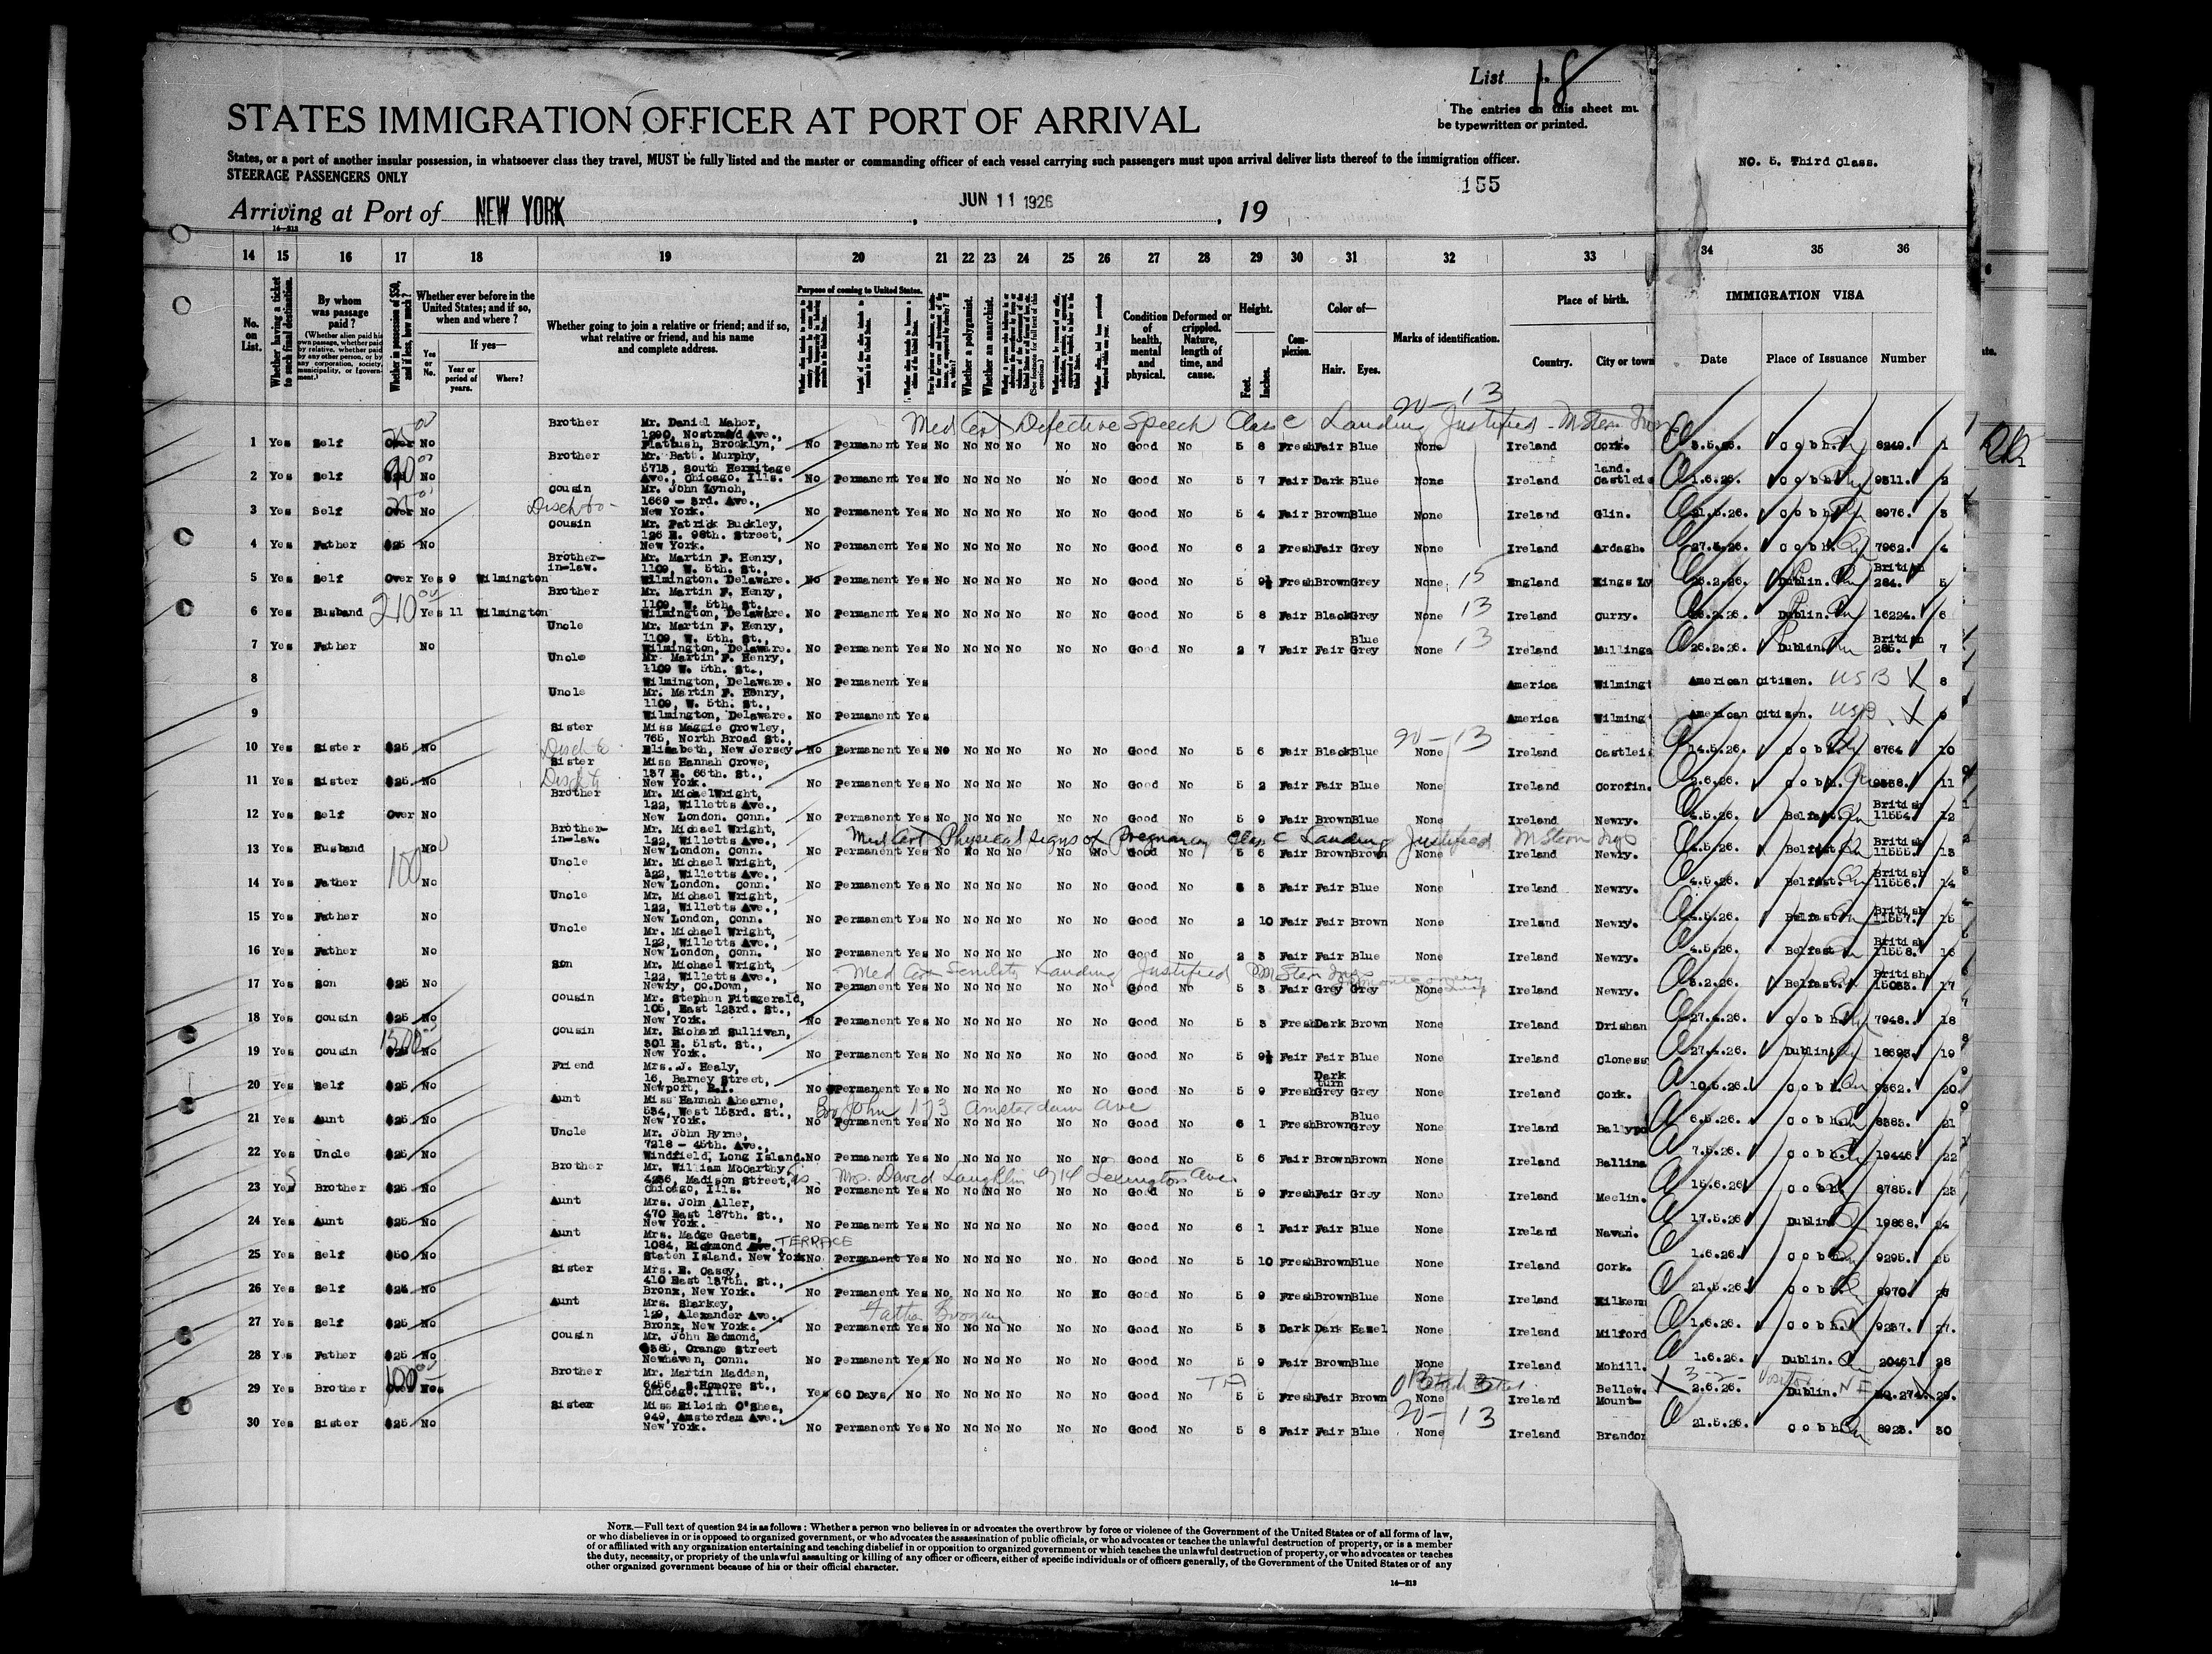 List 18
The entries on this sheet mu
be typewritten or printed.
STATES IMMIGRATION OFFICER AT PORT OF ARRIVAL
States, or a port of another insular possession, in whatsoever class they travel, MUST be fully listed and the master or commanding officer of each vessel carrying such passengers must upon arrival deliver lists thereof to the immigration officer.
STEERAGE PASSENGERS ONLY
NO. 5. Third Class.
155
Arriving at Port of NEW YORK, JUN 11 1926, 19
14 15 16 17 18 19 20 21 22 23 24 25 26 27 28 29 30 31 32 33 34 35 36
No. on List.
Whether having a ticket to such final destination.
By whom was passage paid?
Whether in possession of $50, and if less, how much?
Whether ever before in the United States; and if so, when and where?
Yes or No.
If yes—
Year or period of years.
Where?
Whether going to join a relative or friend; and if so, what relative or friend, and his name and complete address.
Purpose of coming to United States.
Whether a polygamist.
Whether an anarchist.
Condition of health, mental and physical.
Deformed or crippled. Nature, length of time, and cause.
Height.
Feet. Inches.
Complexion.
Color of—
Hair. Eyes.
Marks of identification.
Place of birth.
Country. City or town
IMMIGRATION VISA
Date Place of Issuance Number
20-13
Med Cert Defective Speech Class C Landing Justified - M Stern
1 Yes Self Over No Brother Mr. Daniel Maher, 1290, Nostrand Ave., Flatbush, Brooklyn, No Permanent Yes No No No No No No 5 8 Fresh Fair Blue None Ireland Cork. 3.5.26. Cobh. 8249. 1
2 Yes Self No Brother Mr. Batt. Murphy, 5713, South Hermitage Ave., Chicago. Ills. No Permanent Yes No No No No No No Good No 5 7 Fair Dark Blue None Ireland Castleis land. 1.6.26. Cobh 9311. 2
3 Yes Self Over No Cousin Mr. John Lynch, 1669 - 3rd. Ave., New York. No Permanent Yes No No No No No No Good No 5 4 Fair Brown Blue None Ireland Glin. 21.5.26. Cobh 8976. 3
4 Yes Father $25 No Cousin Mr. Patrick Buckley, 126 E. 98th. Street, New York. No Permanent Yes No No No No No No Good No 6 2 Fresh Fair Grey None Ireland Ardagh. 27.4.26. Cobh. 7962. 4
5 Yes Self Over Yes 9 Wilmington Brother-in-law. Mr. Martin F. Henry, 1109, W. 5th. St., Wilmington. Delaware. No Permanent Yes No No No No No No Good No 5 9½ Fresh Brown Grey None 15 England Kings Ly 26.2.26. Dublin. British 284. 5
6 Yes Husband 210 Yes 11 Wilmington Brother Mr. Martin F. Henry, 1109, W. 5th. St., Wilmington, Delaware. No Permanent Yes No No No No No No Good No 5 8 Fair Black Grey None 13 Ireland Curry. 26.2.26. Dublin. 16224. 6
7 Yes Father No Uncle Mr. Martin F. Henry, 1109, W. 5th. St., Wilmington, Delaware. No Permanent Yes No No No No No No Good No 2 7 Fair Fair Blue Grey None 13 Ireland Mullinga 26.2.26. Dublin. British 285. 7
8 Uncle Mr. Martin F. Henry, 1109 W. 5th. St., Wilmington, Delaware. No Permanent Yes America Wilmingt American Citizen. USB X 8
9 Uncle Mr. Martin F. Henry, 1109, W. 5th. St., Wilmington, Delaware. No Permanent Yes America Wilmingt American Citizen. USB X 9
10 Yes Sister $25 No Sister Miss Maggie Crowley, 765, North Broad St., Elizabeth, New Jersey. No Permanent Yes No No No No No No Good No 5 6 Fair Black Blue 20-13 None Ireland Castleis 14.5.26. Cobh. 8764 10
11 Yes Sister $25 No Sister Miss Hannah Crowe, 137 E. 66th. St., New York. No Permanent Yes No No No No No No Good No 5 2 Fair Fair Blue None Ireland Corofin. 2.6.26. Cobh. 9338. 11
12 Yes Self Over No Brother Mr. Michael Wright, 122, Willetts Ave., New London. Conn. No Permanent Yes No No No No No No Good No 5 9 Fair Brown Blue None Ireland Newry. 4.5.26. Belfast. British 11554. 12
Med Cert Physical signs of Pregnancy Class C Landing Justified M Stern
13 Yes Husband No Brother-in-law. Mr. Michael Wright, 122, Willetts Ave., New London. Conn. No Permanent Yes No No No No No No Good No 5 6 Fair Brown Brown None Ireland Newry. 4.5.26. Belfast. British 11555. 13
14 Yes Father 100 No Uncle Mr. Michael Wright, 122, Willetts Ave., New London. Conn. No Permanent Yes No No No No No No Good No 3 Fair Fair Blue None Ireland Newry. 4.5.26. Belfast. British 11556. 14
15 Yes Father No Uncle Mr. Michael Wright, 122, Willetts Ave., New London, Conn. No Permanent Yes No No No No No No Good No 2 10 Fair Fair Brown None Ireland Newry. 4.5.26. Belfast British 11557. 15
16 Yes Father No Uncle Mr. Michael Wright, 122, Willetts Ave., New London, Conn. No Permanent Yes No No No No No No Good No 2 3 Fair Fair Blue None Ireland Newry. 4.5.26. Belfast British 11558. 16
Med Cert Senility Landing Justified M Stern
17 Yes Son $25 No Son Mr. Michael Wright, 122, Willetts Ave., Newry, Co.Down, No Permanent Yes No No No No No No Good No 5 3 Fair Grey Grey None Ireland Newry. 5.2.26. Belfast. British 15033. 17
18 Yes Cousin $25 No Cousin Mr. Stephen Fitzgerald, 105, East 123rd. St., New York. No Permanent Yes No No No No No No Good No 5 3 Fresh Dark Brown None Ireland Drishan 27.4.26. Cobh 7948. 18
19 Yes Cousin $25 No Cousin Mr. Richard Sullivan, 301 E. 51st. St., New York. No Permanent Yes No No No No No No Good No 5 9½ Fair Fair Blue None Ireland Cloness 27.4.26. Dublin. 18693. 19
20 Yes Self $25 No Friend Mrs. J. Healy, 16, Barney Street, Newport, R.I. No Permanent Yes No No No No No No Good No 5 9 Fresh Dark turn Grey Grey None Ireland Cork. 10.5.26. Cobh 20
21 Yes Aunt $25 No Aunt Miss Hannah Ahearne, 534, West 153rd. St., New York. John 173 Amsterdam Ave No Permanent Yes No No No No No No Good No 6 1 Fresh Brown Blue Grey None Ireland 6.5.26. Cobh 8383. 21
22 Yes Uncle $25 No Uncle Mr. John Byrne, 7218 - 45th. Ave., Windfield, Long Island. No Permanent Yes No No No No No No Good No 5 6 Fair Brown Brown None Ireland Ballina 7.5.26. Cobh. 19446. 22
23 Yes Brother $25 No Brother Mr. William McCarthy, 4236, Madison Street, Chicago, Ills. Mrs. David Laughlin 914 Lexington Ave. No Permanent Yes No No No No No No Good No 5 9 Fresh Fair Grey None Ireland Meelin. 15.6.26 Cobh 8785. 23
24 Yes Aunt $25 No Aunt Mrs. John Aller, 470 East 187th. St., New York. No Permanent Yes No No No No No No Good No 6 1 Fair Fair Blue None Ireland Navan. 17.5.26 Dublin 19868. 24
25 Yes Self $50 No Aunt Mrs. Madge Gaetz, 1084, Richmond Ave., TERRACE Staten Island. New York No Permanent Yes No No No No No No Good No 5 10 Fresh Brown Blue None Ireland Cork. 1.6.26. Cobh 9295. 25
26 Yes Self $25 No Sister Mrs. E. Casey, 410 East 137th. St., Bronx, New York. No Permanent Yes No No No No No No Good No 5 9 Fresh Brown Blue None Ireland Kilkenn 21.5.26. Cobh 8970. 26
27 Yes Self $25 No Aunt Mrs. Sharkey, 129, Alexander Ave., Bronx, New York. Father No Permanent Yes No No No No No No Good No 5 3 Dark Dark Hazel None Ireland Milford 1.6.26. Cobh. 9237. 27.
28 Yes Father $25 No Cousin Mr. John Redmond, 385, Orange Street Newhaven, Conn. No Permanent Yes No No No No No No Good No 5 9 Fair Brown Blue None Ireland Mohill. 1.6.26. Dublin. 20461. 28
29 Yes Brother 100 Over Brother Mr. Martin Madden, 6456, S.Homore St., Chicago. Ills. Yes 60 Days No No No No No No No Good No 5 5 Fresh Fair Brown None Ireland Bellew. Mount- 2.6.26. Dublin. No. 274. 29.
30 Yes Sister $25 No Sister Miss Eileish O'Shea, 949, Amsterdam Ave., New York. No Permanent Yes No No No No No No Good No 5 8 Fair Fair Blue 20-13 None Ireland Brandon 21.5.26. Cobh 8923. 30
NOTE.—Full text of question 24 is as follows: Whether a person who believes in or advocates the overthrow by force or violence of the Government of the United States or of all forms of law,
or who disbelieves in or is opposed to organized government, or who advocates the assassination of public officials, or who advocates or teaches the unlawful destruction of property, or is a member
of or affiliated with any organization entertaining and teaching disbelief in or opposition to organized government or which teaches the unlawful destruction of property, or who advocates or teaches
the duty, necessity, or propriety of the unlawful assaulting or killing of any officer or officers, either of specific individuals or of officers generally, of the Government of the United States or of any
other organized government because of his or their official character.
14—213